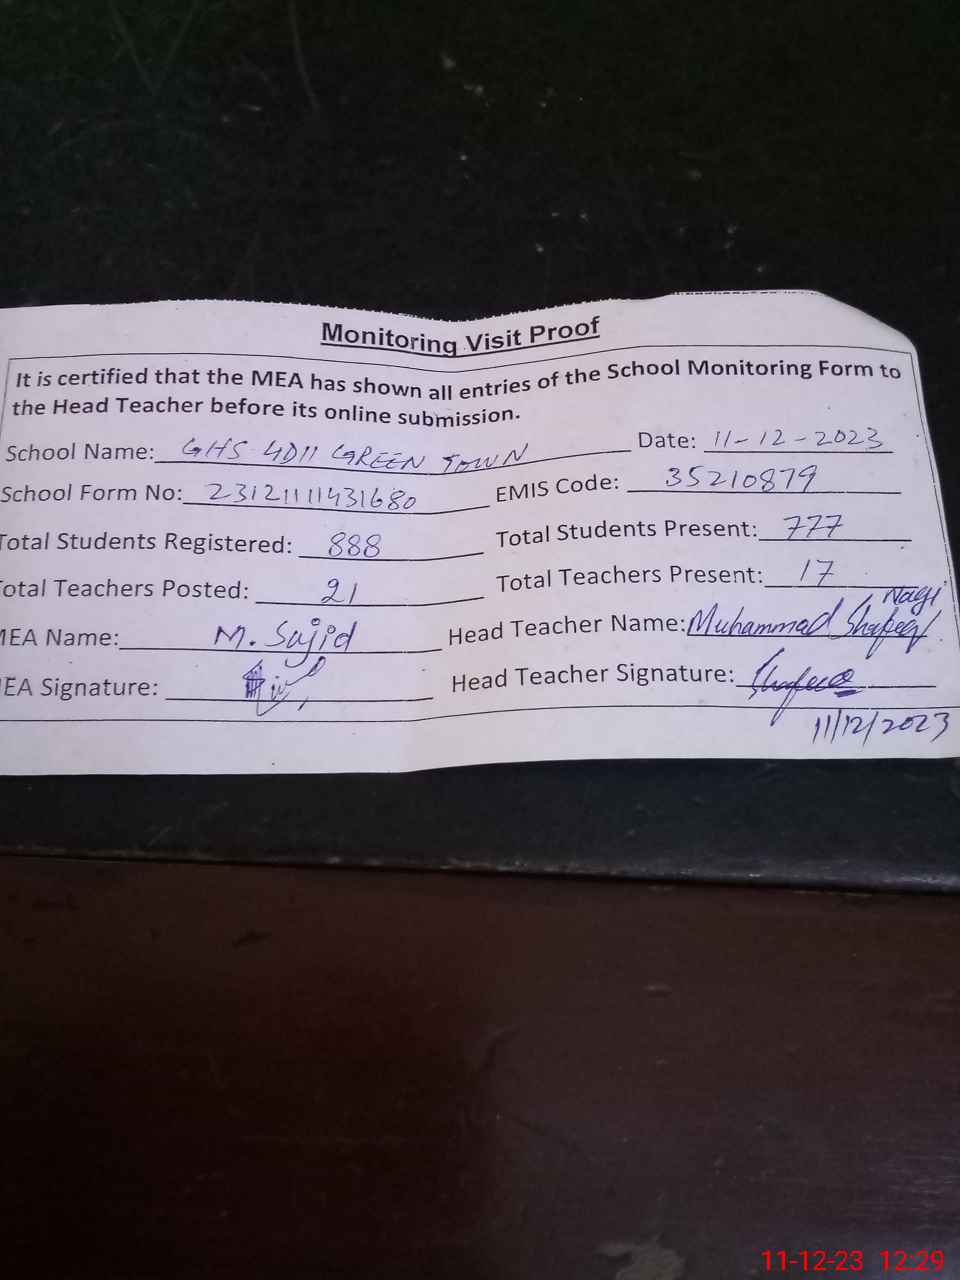 Monitoring Visit Proof
It is certified that the MEA has shown all entries of the School Monitoring Form to
the Head Teacher before its online submission.
School Name: GHS 4D11 GREEN TOWN Date: 11-12-2023
School Form No: 23121111431680 EMIS Code: 35210879
Total Students Registered: 888 Total Students Present: 777
Total Teachers Posted: 21 Total Teachers Present: 17
MEA Name: M. Sajid Head Teacher Name: Muhammad Shafeeq Nagi
MEA Signature: Head Teacher Signature:
11/12/2023
11-12-23 12:29